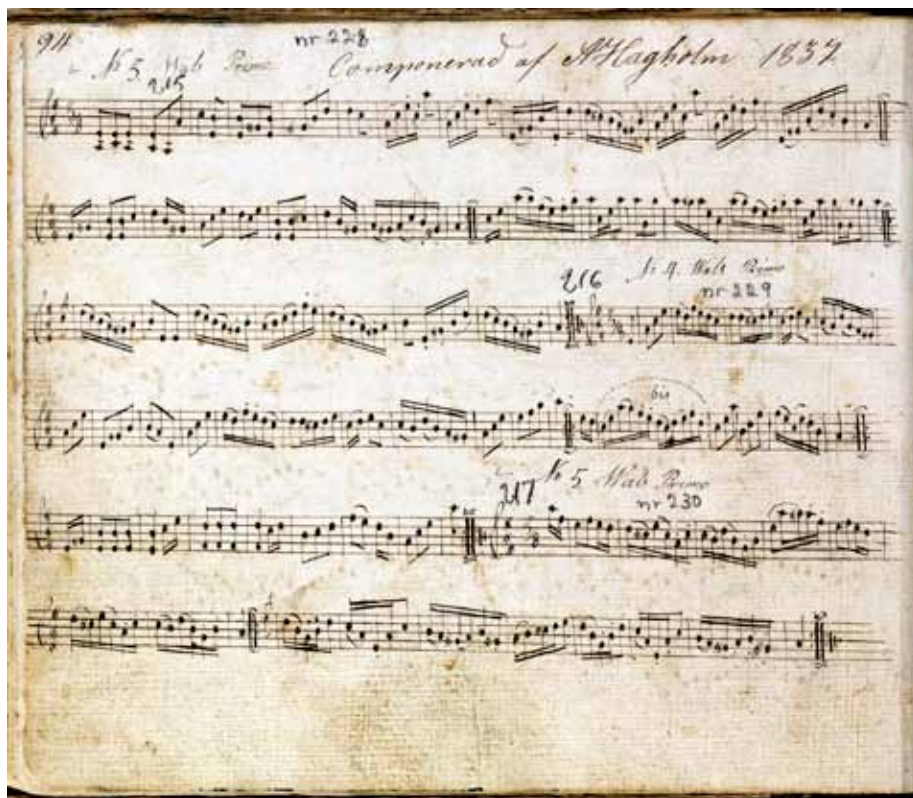 94 nr 228
№ 5 Wals Primo Componerad af A Hagholm 1837
215
216 Nr 4. Wals Primo
nr 229
bis
217 № 5 Wals Primo
nr 230